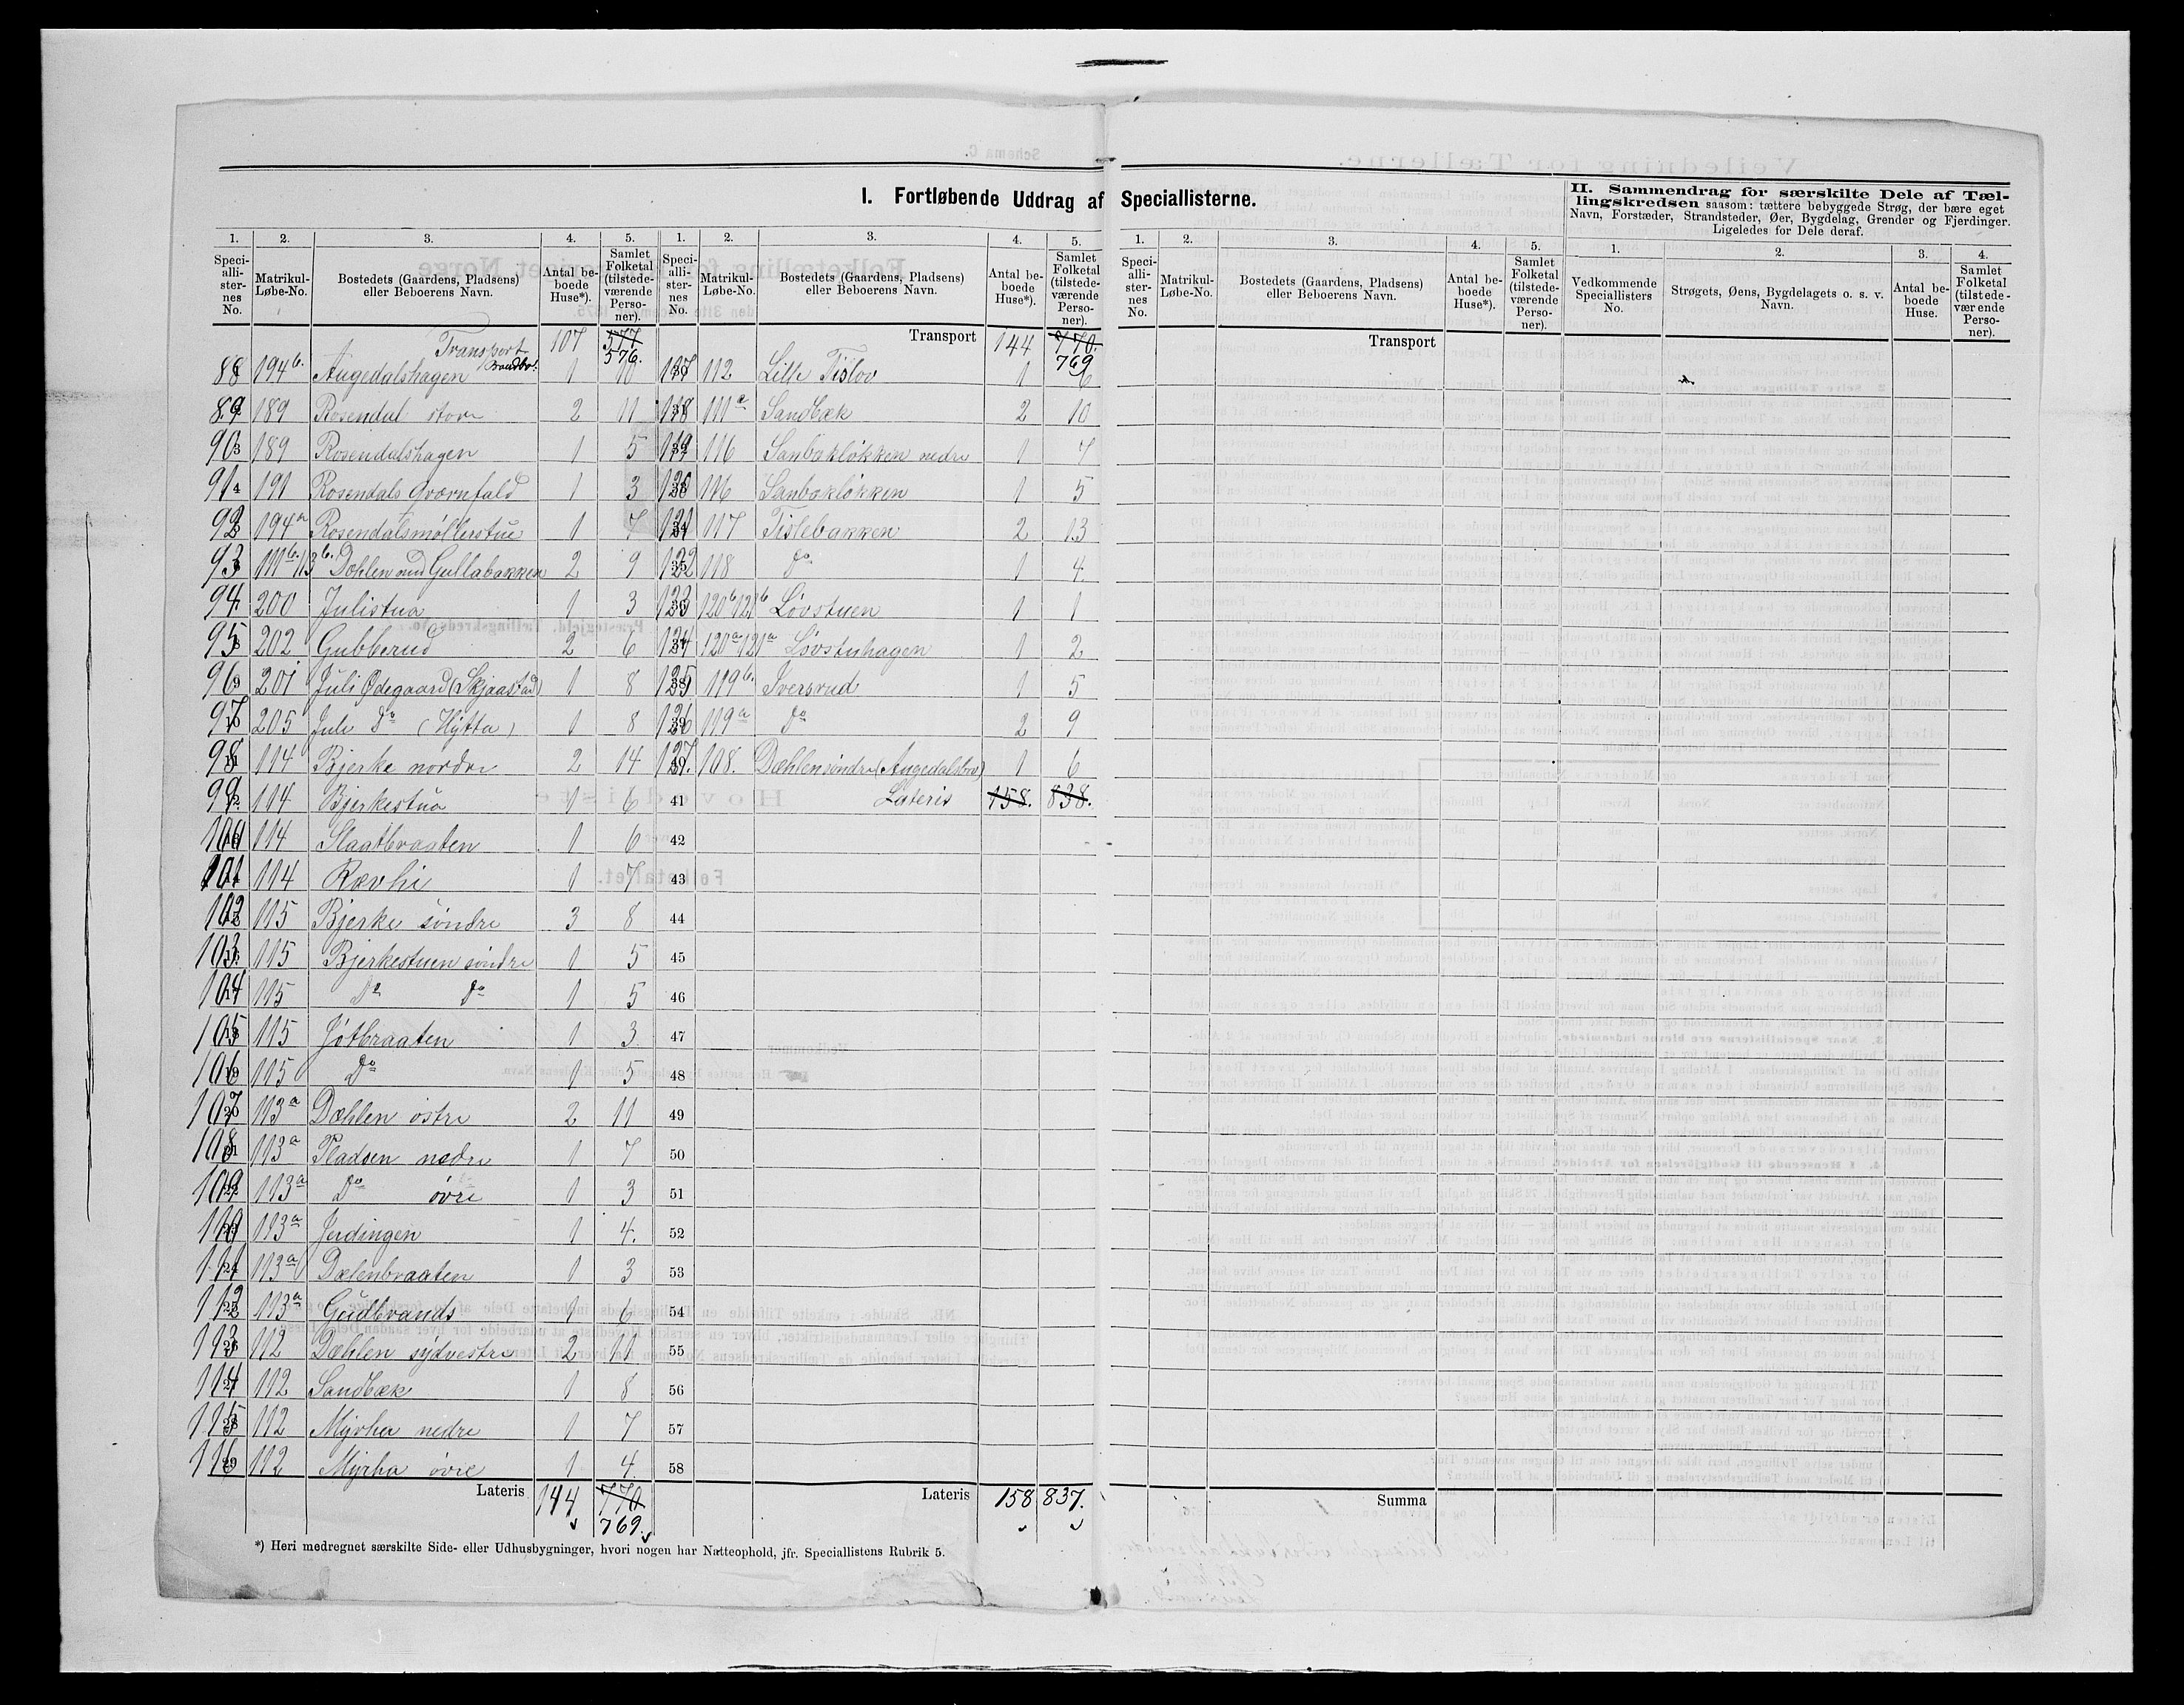 I. Fortløbende Uddrag af Speciallisterne.
II. Sammendrag for særskilte Dele af Tællingskredsen saasom: tættere bebyggede Strøg, der bære eget
Navn, Forstæder, Strandsteder, Øer, Bygdelag, Grender og Fjerdinger.
Ligeledes for Dele deraf.
1. 2. 3. 4. 5.
Speciallisternes No. Matrikul-Løbe-No. Bostedets (Gaardens, Pladsens) eller Beboerens Navn. Antal beboede Huse*). Samlet Folketal (tilstedeværende Personer).
Transport 107 577 576.
88 194b. Augedalshagen 1 10
89 189 Rosendal store 2 11
90 189 Rosendalshagen 1 5
91 191 Rosendals Qværnfald 1 3
92 194a Rosendalsmøllerstue 1 7
93 111b. 113b. Dæhlen med Gullabakken 2 9
94. 200 Julistua 1 3
95 202 Gubberud 2 6
96 201 Juli Ødegaard (Skjaastad) 1 8
97 205 Juli Do (Hytta) 1 8
98 114 Bjerke nordre 2 14
99 114 Bjerkestua 1 6
100 114 Slaatbraaten 1 6
101 114 Rævhi 1 7
102 115 Bjerke søndre 3 8
103 115 Bjerkestuen søndre 1 5
104 115 Do Do 1 5
105 115 Jøtbraaten 1 3
106 115 Do 1 5
107 113a Dæhlen østre 2 11
108 113a Pladsen nedre 1 7
109 113a Do øvre 1 3
110 113a Jerdingen 1 4.
111 113a Dælenbraaten 1 3
112 113a Gudbrands 1 6
113 112 Dæhlen sydvestre 2 11
114 112 Sandbæk 1 8
115 112 Myrha nedre 1 7
116 112 Myrha øvre 1 4.
Lateris 144 770 769.
*) Heri medregnet særskilte Side- eller Udhusbygninger, hvori nogen har Natteophold, jfr. Speciallistens Rubrik 5.
1. 2. 3. 4. 5.
Speciallisternes No. Matrikul-Løbe-No. Bostedets (Gaardens, Pladsens) eller Beboerens Navn. Antal beboede Huse*). Samlet Folketal (tilstedeværende Personer).
Transport 144 770. 769
117 112 Lille Tislov 1 6
118 111a Sandbæk 2 10
119 116 Sanbakløkken nedre 1 7
120 116 Sanbakløkken 1 5
121 117 Tislebakken 2 13
122 118 Do 1 4.
123 120b 121b Løvstuen 1 1
124 120a 121a Løvstuhagen 1 2
125 119b. Iversrud 1 5
126 119a Do 2 9
127. 108. Dæhlen søndre (Augedalsbro) 1 6
41 Lateris 158. 838.
42
43
44
45
46
47
48
49
50
51
52
53
54
55
56
57
58
Lateris 158 837.
1. 2. 3. 4. 5.
Speciallisternes No. Matrikul-Løbe-No. Bostedets (Gaardens, Pladsens) eller Beboerens Navn. Antal beboede Huse*). Samlet Folketal (tilstedeværende Personer).
Transport
Summa
1. 2. 3. 4.
Vedkommende Speciallisters No. Strøgets, Øens, Bygdelagets o. s. v. Navn. Antal beboede Huse. Samlet Folketal (tilstedeværende Personer).